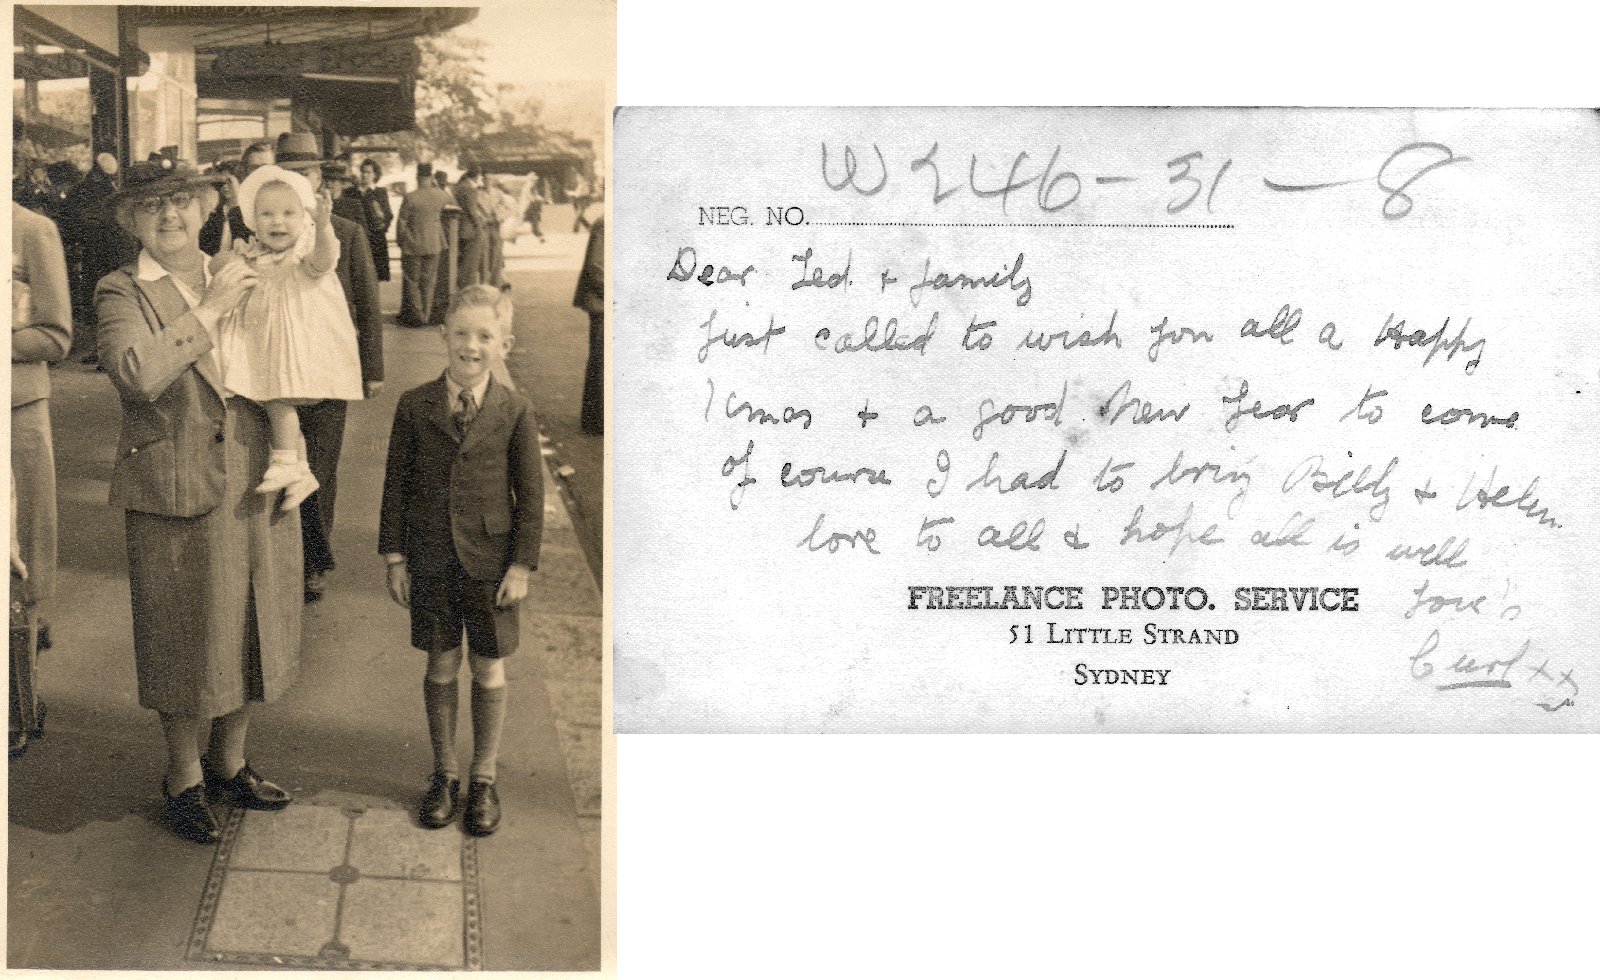 W246-31-8
NEG. NO.
Dear Ted. + family
Just called to wish you all a Happy
Xmas + a good New Year to come
of course I had to bring Billy + Helen.
love to all & hope all is well
FREELANCE PHOTO. SERVICE
Love's
51 LITTLE STRAND
SYDNEY
xx